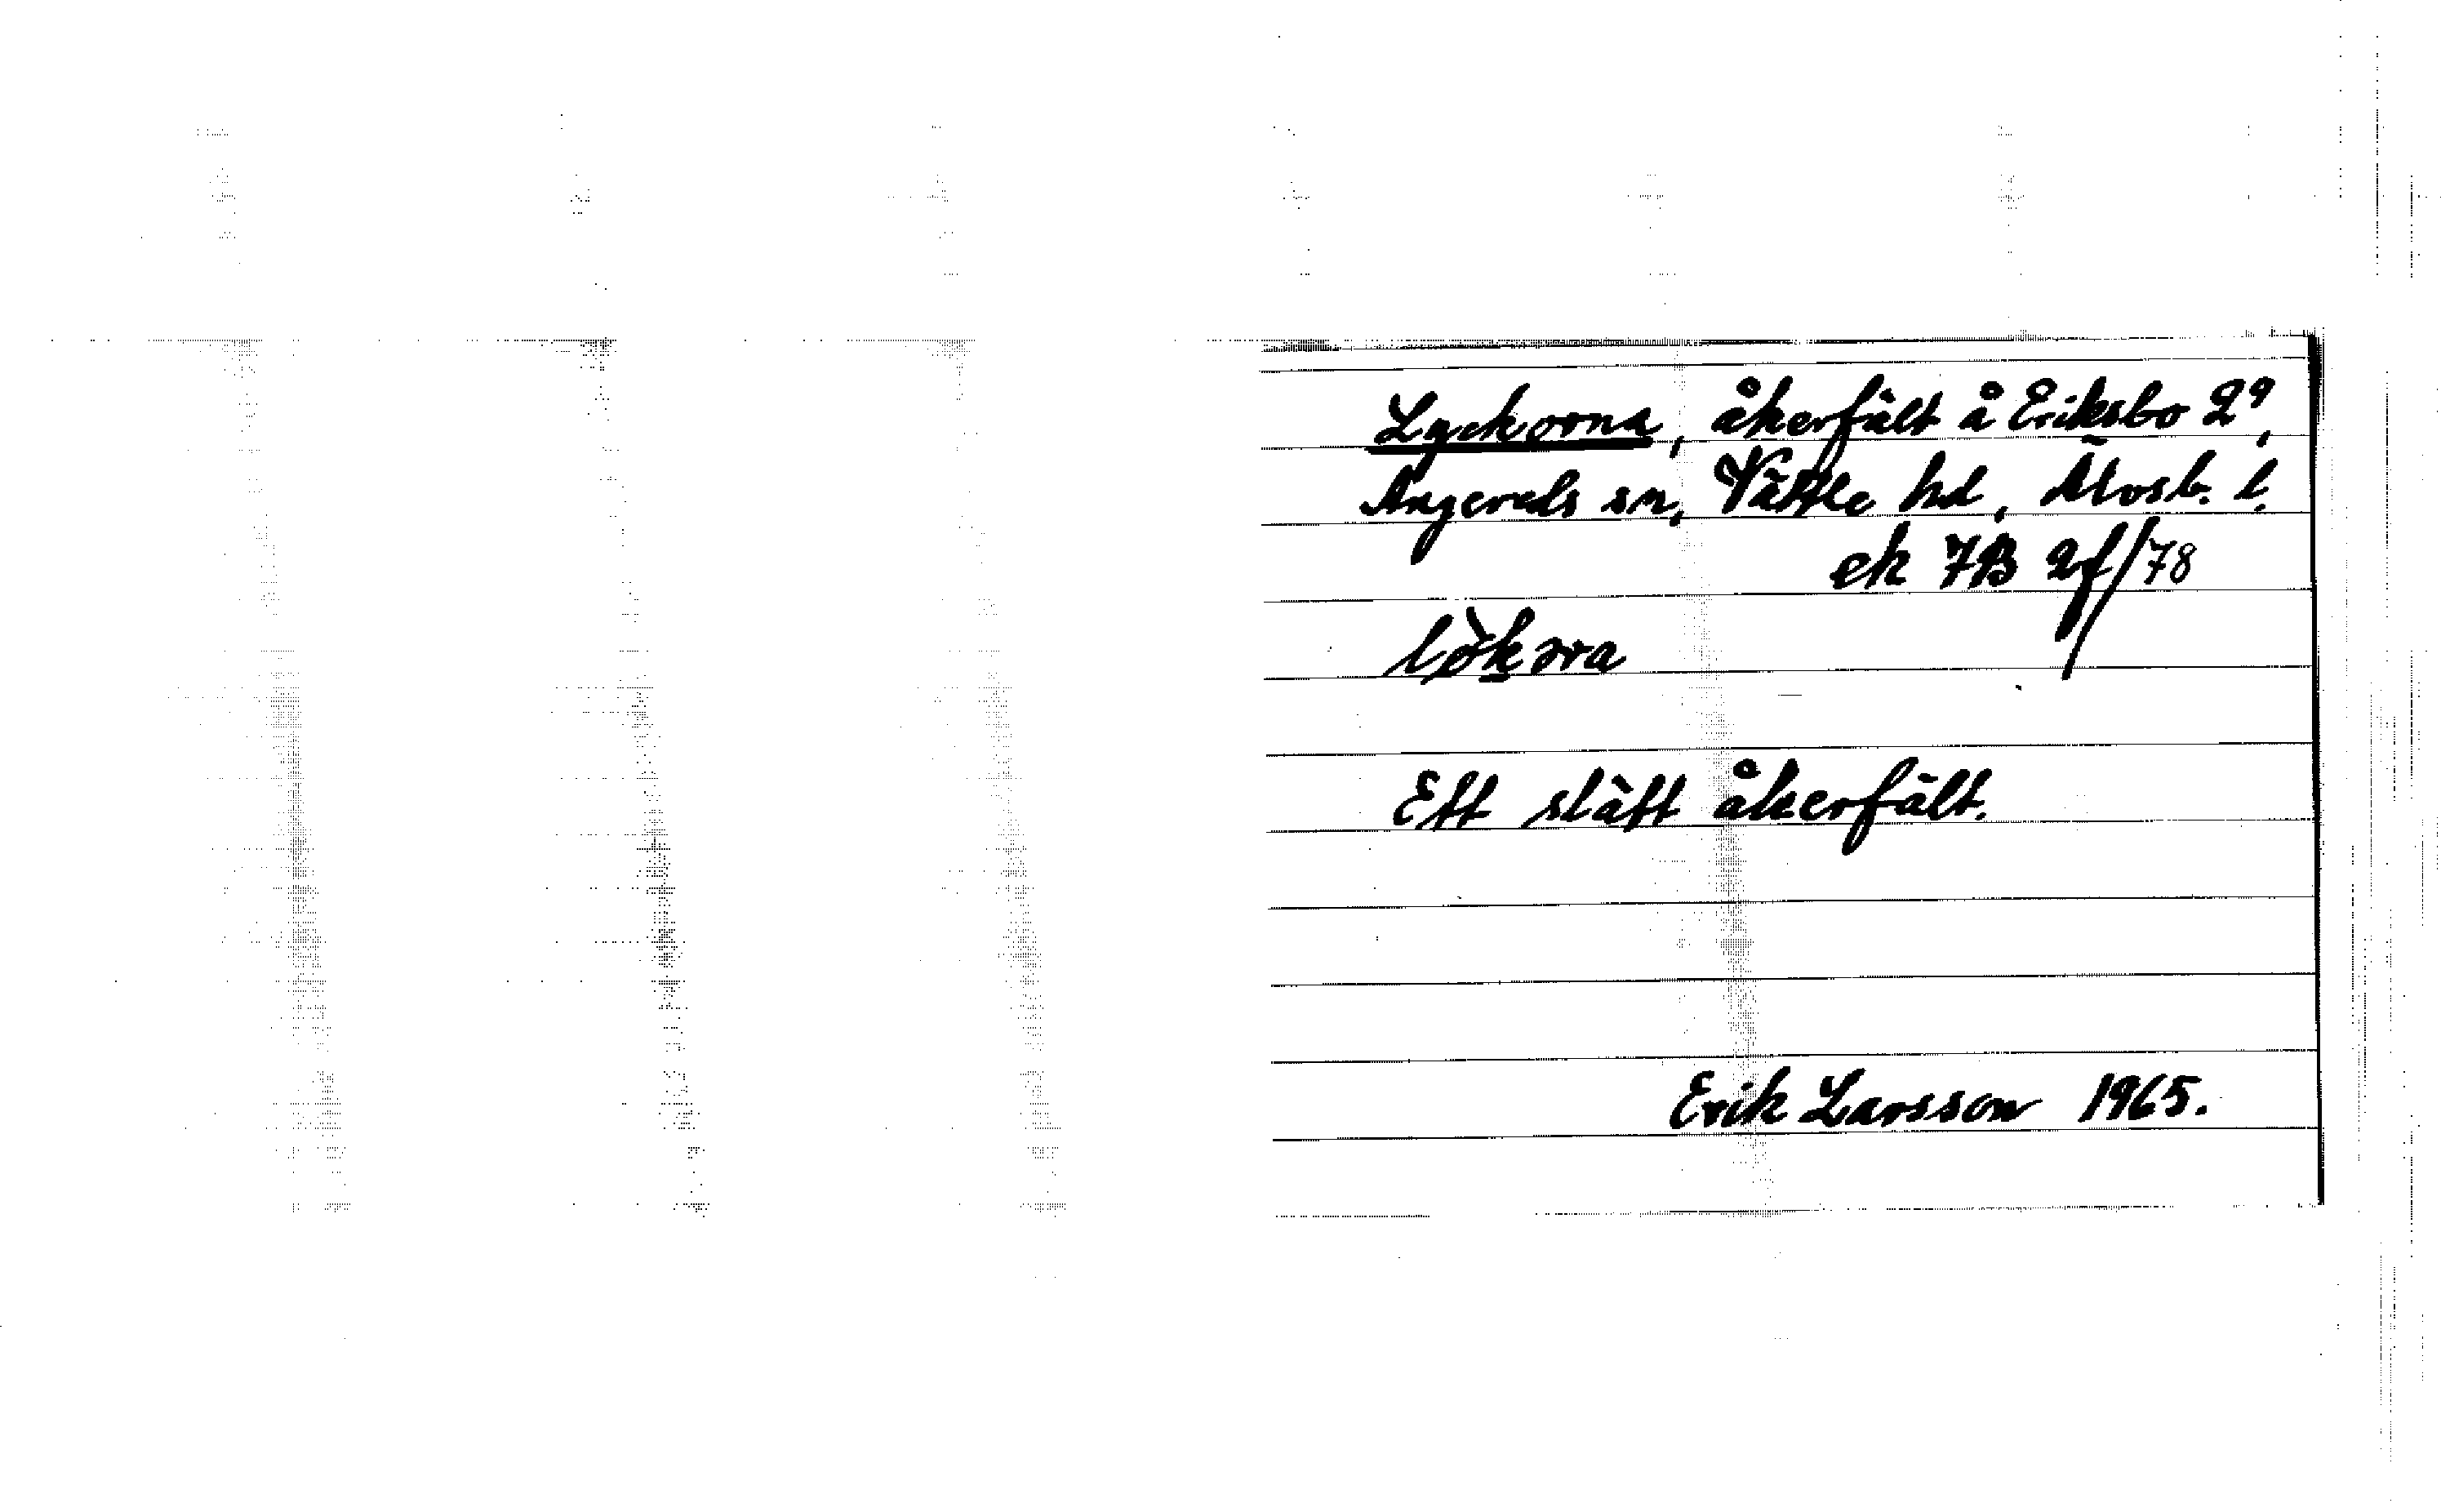 Lyckorna, åkerfält å Eriksbo 2⁹,
Angereds sn, Vättle hd, Älvsb. l.
ek 7B 2f/78
lò̀kəra
Ett slätt åkerfält.
Erik Larsson 1965.